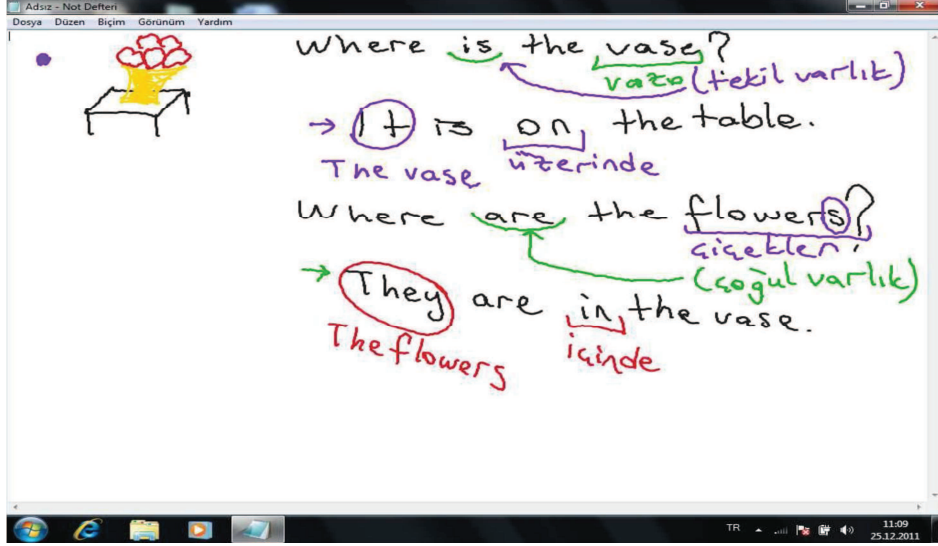 Adsız - Not Defteri
Dosya Düzen Biçim Görünüm Yardım
Where is the vase?
vazo (tekil varlık)
→ It is on the table.
The vase üzerinde
Where are the flowers?
çiçekler
(çoğul varlık)
→ They are in the vase.
The flowers içinde
TR 11:09
25.12.2011